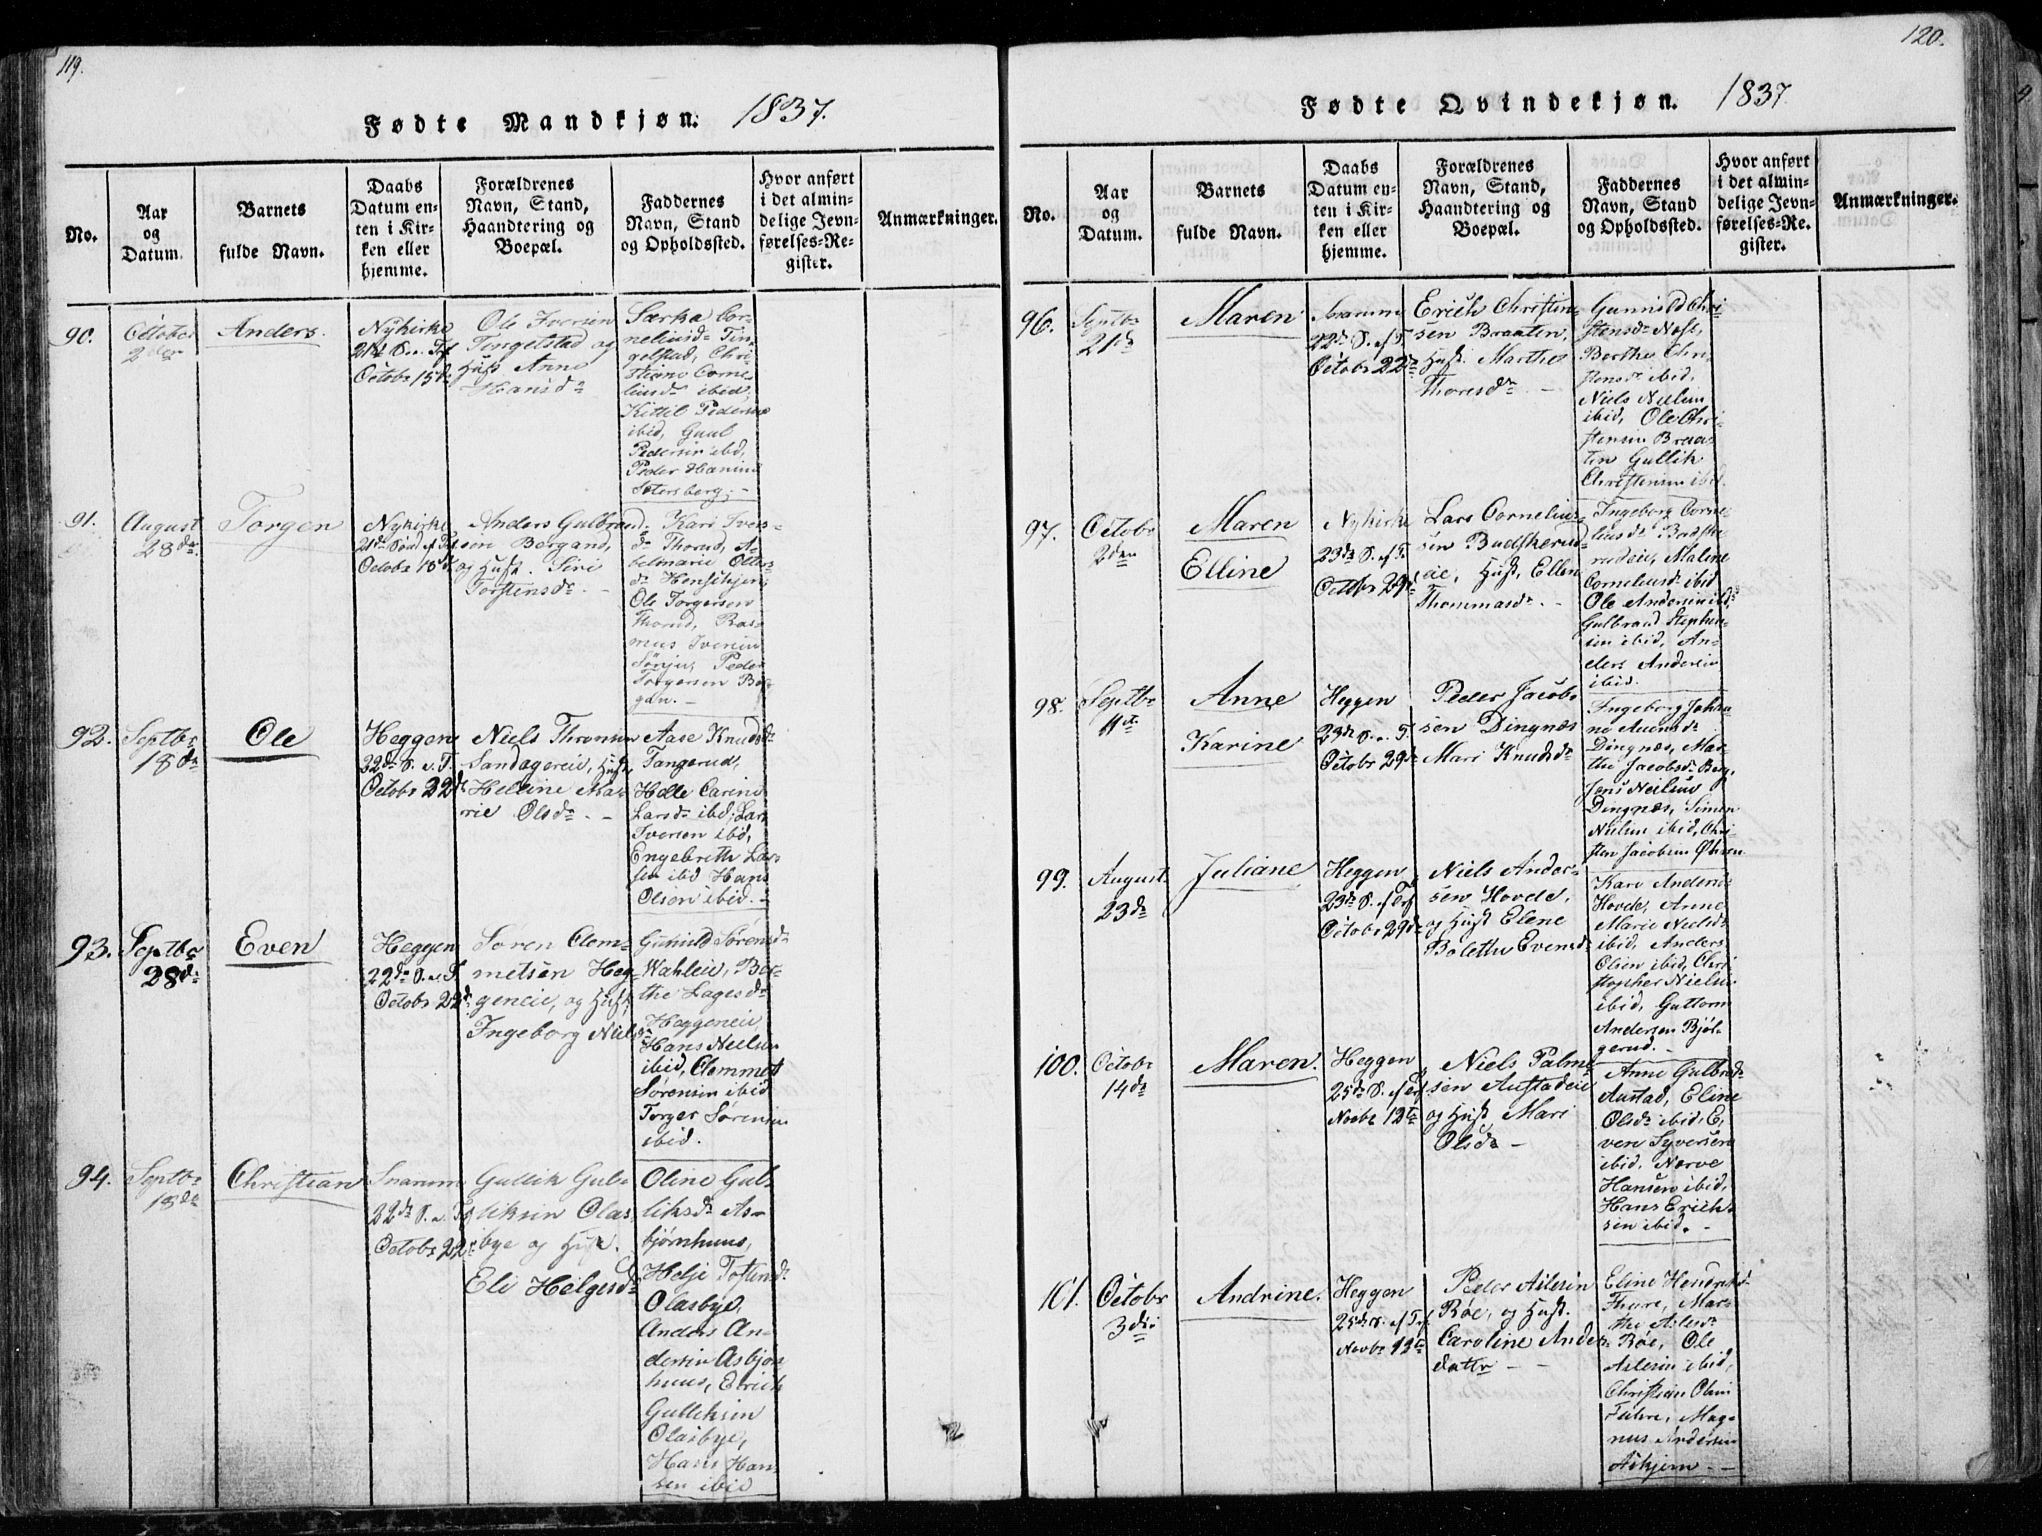 119.
Fødte Mandkjøn. 1837.
No.
Aar
og
Datum.
Barnets
fulde Navn.
Daabs
Datum en-
ten i Kir-
ken eller
hjemme.
Forældrenes
Navn, Stand,
Haandtering og
Boepæl.
Faddernes
Navn, Stand
og Opholdssted.
Hvor anført
i det almin-
delige Jevn-
førelses-Re-
gister.
Anmærkninger.
90.
Octobr
2den
Anders.
Nykirke
21de S. e. Trf
Octobr 15de
Ole Iversen
Tingelstad og
Hust Anne
Hansdr
Særka Cor-
neliusdr Tin-
gelstad, Chri-
stiane Corne-
liusdr ibid,
Kittil Pedersen
ibid, Guul
Pedersen ibd,
Peder Hansen
Setersberg. -
91.
August
28de
Torgen
Nykirke
21de Sønd ef Trf
Octobr 15de
Anders Gulbrand-
sen Bergand,
og Hust. Siri
Torstensdr. -
Kari Ivers-
dr Thorud, A-
belmarie Olles-
dr
Ole Torgersen
Thorud, Ras-
mus Iversen
Peder
Torgersen Ber-
gan. -
92.
Septbr
18de
Ole
Heggen
22de S. e. T.
Octobr 22de
Niels Thronsen
Sandagereie, Hust
Helline Ma-
rie Olsdr. -
Aase Knudsdr
Tangerud,
Helle Carine
Larsdr ibd, Lars
Iversen ibd,
Engebreth Lar-
sen ibd Hans
Olsen ibid. -
93.
Septbr
28de
Even
Heggen
22de S. e. T.
Octobr 22de
Søren Clem-
metsen Heg-
geneie, og Hust,
Ingeborg Nielsdr
Gunild Sørensdr
Wahleie, Ber-
the Lagesdr
Heggeneie
Hans Nielsen
ibid, Clemmet
Sørensen ibid
Torger Sørensen
ibid.
94.
Septbr
18de
Christian
Snarum
22de S. e. Trf
Octobr 22de
Gullik Gul-
liksen Olas-
bye og Hust.
Eli Helgesdr
Oline Gul-
liksdr As-
bjørnhuus,
Helje Tostensdr
Olasbye,
Anders An-
dersen Asbjørn-
huus, Erich
Gulliksen
Olasbye,
Hans Han-
sen ibid
120.
Fødte Qvindekjøn. 1837.
No.
Aar
og
Datum.
Barnets
fulde Navn.
Daabs
Datum en-
ten i Kir-
ken eller
hjemme.
Forældrenes
Navn, Stand,
Haandtering og
Boepæl.
Faddernes
Navn, Stand
og Opholdssted.
Hvor anført
i det almin-
delige Jevn-
førelses-Re-
gister.
Anmærkninger.
96.
Septbr
21de
Maren
Snarum
22de S. ef T
Octobr 22de
Erich Christen-
sen Braaten,
Hust. Marthe
Thoresdr. -
Gunnild Chri-
stensdr Næse,
Berthe Chri-
stensdr ibid,
Niels Nielsen
ibid, Ole Chri-
stensen Braa-
ten Gullik
Christensen ibid.
97.
Octobr
2den
Maren
Elline
Nykirke
23de S. ef T.
Octobr 29de
Lars Cornelius-
sen Budskerud-
eie, Hust, Ellen
Thommasdr. -
Ingeborg Corne-
liusdr Budske-
rudeie, Maline
Corneliusdr ibid
Ole Andersen ibd,
Gulbrand Stephen-
sen ibid, An-
ders Andersen
ibid.
98.
Septbr
11te
Anne
Karine
Heggen
23de S. e. T.
Octobr 29de
Peder Jacob-
sen Dingnæs
Mari Knudsdr
Ingeborg Johan-
ne
Dingnæs, Mar-
the Jacobsdr Berg,
Jens Nielsen
Dingnæs, Simen
Nielsen ibid, Chri-
sten Jacobsen Øhren
99.
August
23de
Juliane
Heggen
23de S. ef Trf
Octobr 29de
Niels Ander-
sen Hovde,
og Hust Elene
Bolethe Evensdr
Kari Andersdr
Hovde, Anne
Marie Nielsdr
ibid, Anders
Olsen ibid, Chri-
stopher Nielsen
ibid, Guttorm
Andersen Bjøl-
gerud. -
100.
Octobr
14de
Maren.
Heggen
25de S. ef Trf
Novbr 12te
Niels Palme-
sen Austadeie
og Hust Mari
Olsdr -
Anne Gulbrdr
Austad, Eline
Olsdr ibid, E-
ven Syversen
ibid, Narve
Hansen ibid,
Hans Erich-
sen ibid. -
101.
Octobr
3die
Andrine.
Heggen
25de S. ef Trf
Novbr 12te
Peder Aslesen
Røe, og Hust.
Caroline Anders-
datter - -
Eline Hendriksdr
Thure, Mar-
the Aslesdr
Røe, Ole
Aslesen ibid,
Christian Olsen
Mag-
nus Andersen
Askjem. - -